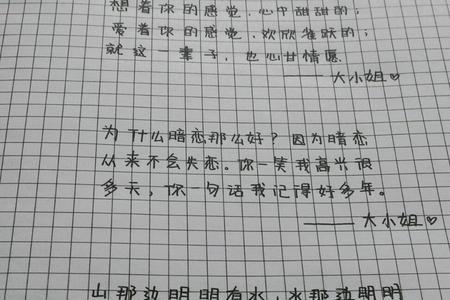 想着你的感觉，心中甜甜的；
爱着你的感觉，欢欣雀跃的；
就这一辈子，也心甘情愿。
——大小姐♡
为什么暗恋那么好？因为暗恋
从来不会失恋。你一笑我高兴很
多天，你一句话我记得好多年。
——大小姐♡
山那边明明有水，水那边明明